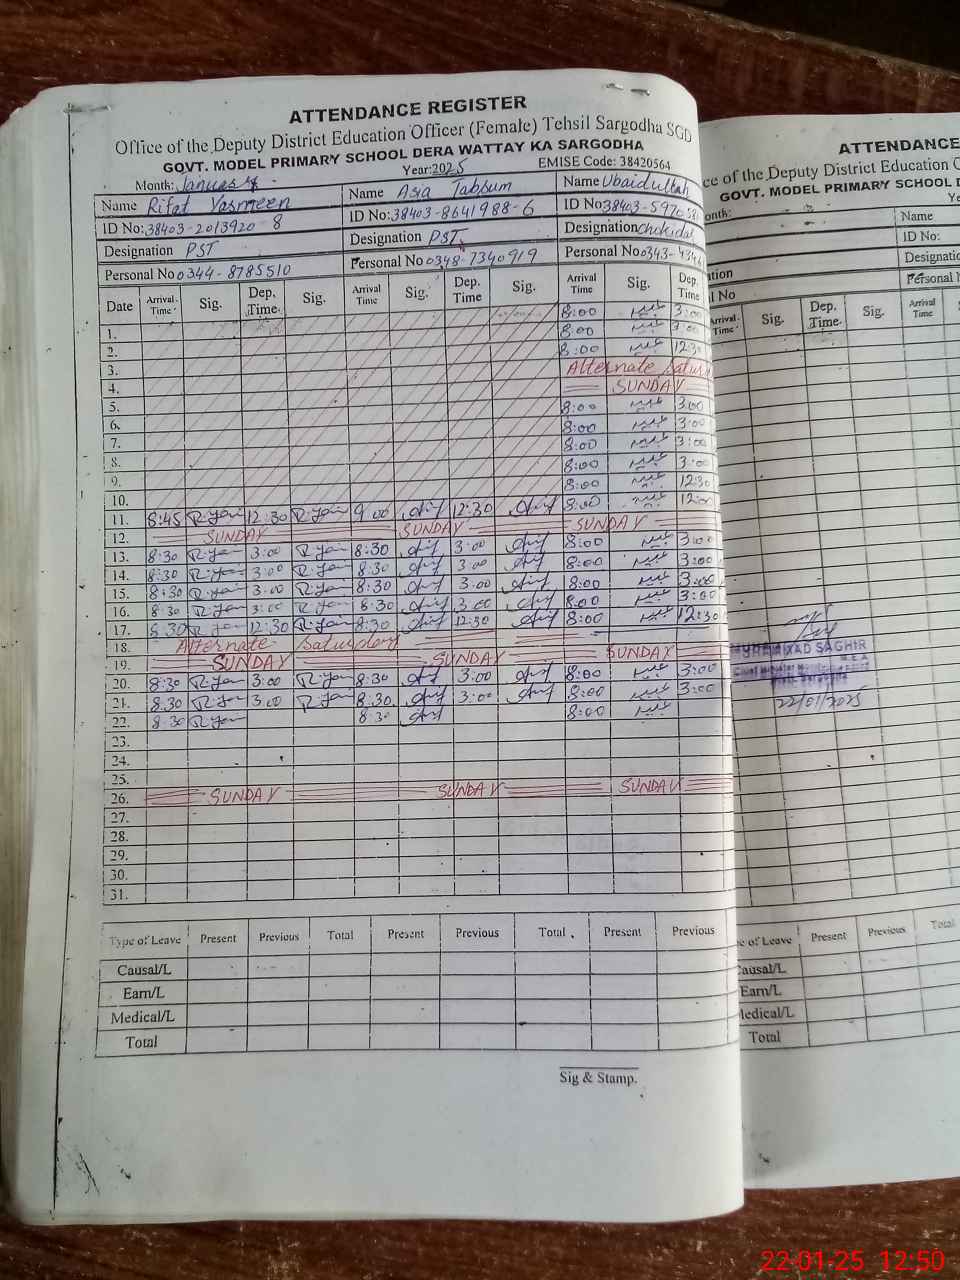 ATTENDANCE REGISTER
Office of the Deputy District Education Officer (Female) Tehsil Sargodha SGD
GOVT. MODEL PRIMARY SCHOOL DERA WATTAY KA SARGODHA
Month: January Year: 2025 EMISE Code: 38420564
Name Rifat Yasmeen Name Asia Tabsum Name Ubaidullah
ID No: 38403-2013920-8 ID No: 38403-8641988-6 ID No 38403-5970
Designation PST Designation PST Designation Chokidar
Personal No 0344-8785510 Personal No 0348-7340919 Personal No 0343-
Date Arrival Time Sig. Dep. Time Sig. Arrival Time Sig. Dep. Time Sig. Arrival Time Sig. Dep. Time
8:00 عبید 3:00
1. 8:00 عبید 3:00
2. 8:00 عبید 12:30
3. Alternate Satur
4. SUNDAY
5. 8:00 عبید 3:00
6. 8:00 عبید 3:00
7. 8:00 عبید 3:00
8. 8:00 عبید 3:00
9. 8:00 عبید 12:30
10. 8:00 عبید 12:00
11. 8:45 R.Yas 12:30 R.Yas 9:00 12:30
12. SUNDAY SUNDAY SUNDAY
13. 8:30 R.Yas 3:00 R.Yas 8:30 3:00 8:00 عبید 3:00
14. 8:30 R.Yas 3:00 R.Yas 8:30 3:00 8:00 عبید 3:00
15. 8:30 R.Yas 3:00 R.Yas 8:30 3:00 8:00 عبید 3:00
16. 8:30 R.Yas 3:00 R.Yas 8:30 3:00 8:00 عبید 3:00
17. 8:30 R.Yas 12:30 R.Yas 8:30 12:30 8:00 عبید 12:30
18. Alternate Saturday
19. SUNDAY SUNDAY SUNDAY
20. 8:30 R.Yas 3:00 R.Yas 8:30 3:00 8:00 عبید 3:00
21. 8:30 R.Yas 3:00 R.Yas 8:30 3:00 8:00 عبید 3:00
22. 8:30 R.Yas 8:30 8:00 عبید
23.
24.
25.
26. SUNDAY SUNDAY SUNDAY
27.
28.
29.
30.
31.
Type of Leave Present Previous Total Present Previous Total Present Previous
Causal/L
Earn/L
Medical/L
Total
Sig & Stamp.
ATTENDANCE
ce of the Deputy District Education
GOVT. MODEL PRIMARY SCHOOL
onth:
Name
ID No:
Designatio
Personal
Arrival Time Sig. Dep. Time Sig. Arrival Time
MUHAMMAD SAGHIR
22/01/2025
of Leave Present Previous Total
Causal/L
Earn/L
Medical/L
Total
22-01-25 12:50